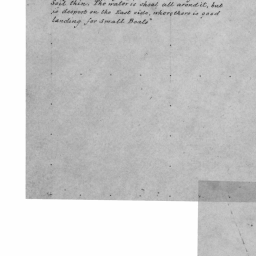 Soil thin. The water is shoal all around it, but
is deepest on the East side, where there is good
landing for small Boats"